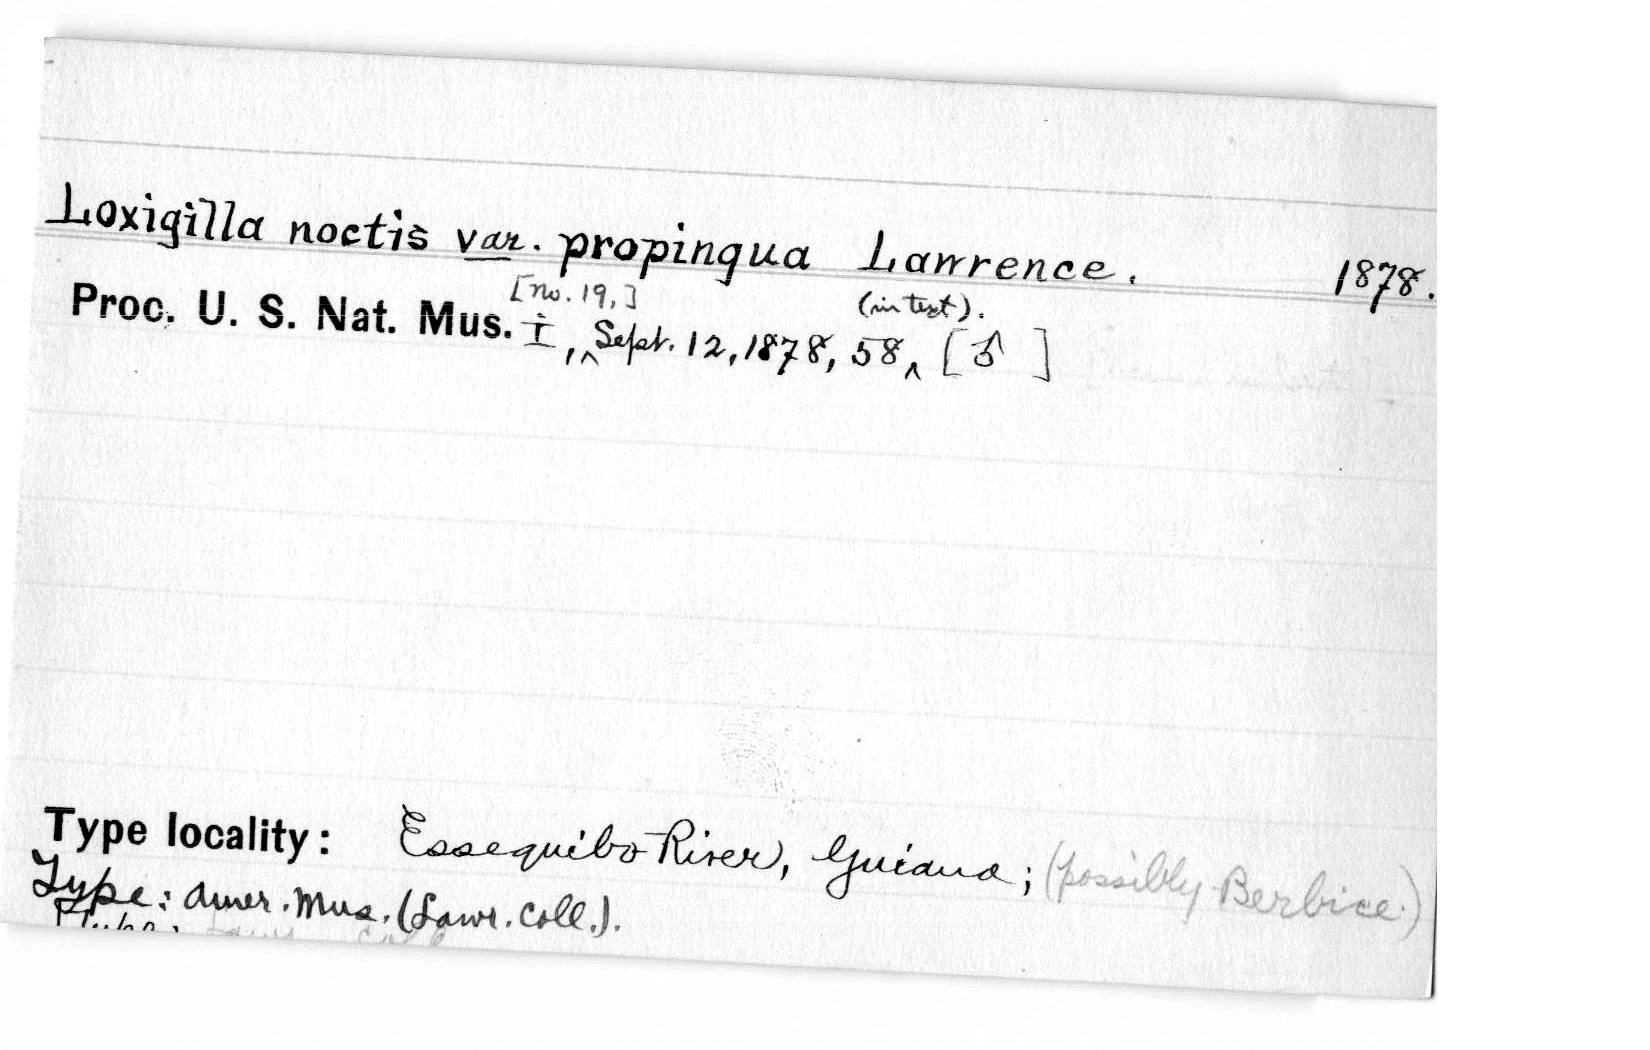 Loxigilla noctis var. propinqua Lawrence. 1878.
[no. 19,] (in text).
Proc. U. S. Nat. Mus. I, ^ Sept. 12, 1878, 58, ^ [♂ ]
Type locality: Essequibo River, Guiana; (possibly Berbice.)
Type: Amer. Mus. (Lawr. Coll.).